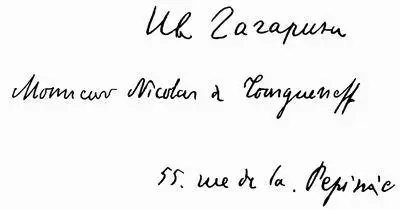 Ив Гагарин
Monsieur Nicolas de Tourgueneff
55. rue de la. Pepinière